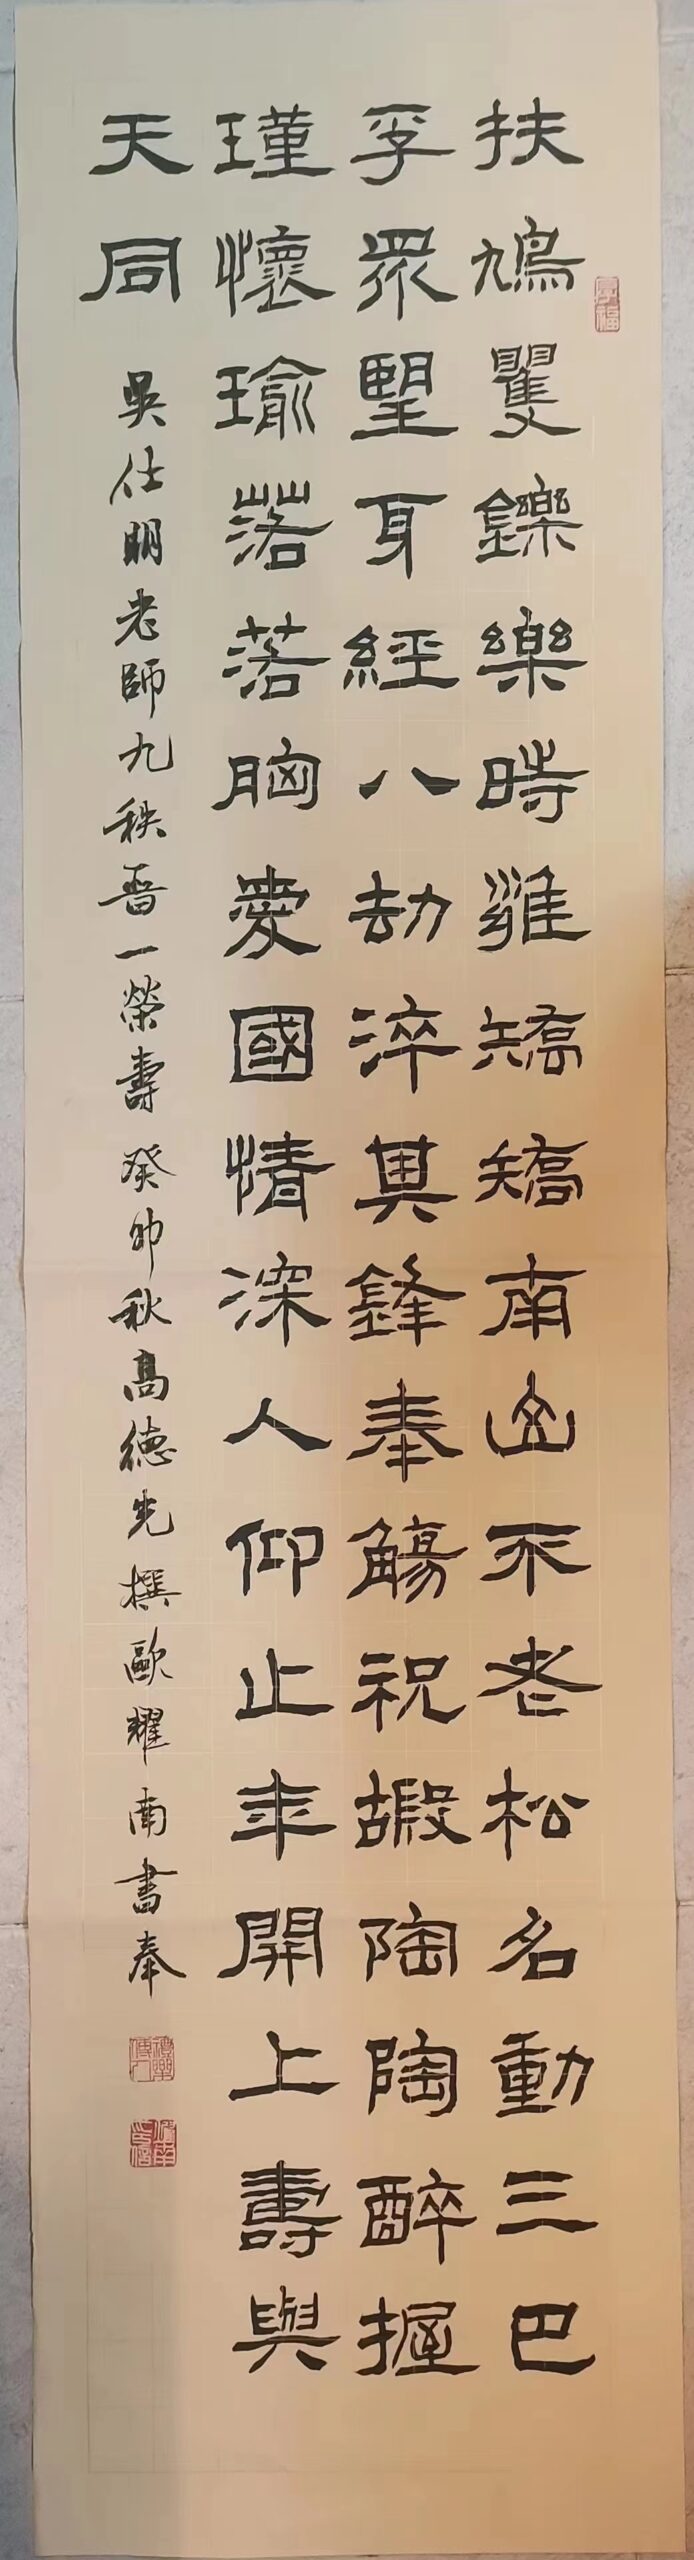 扶鳩矍鑠樂時雍矯矯南山不老松名動三巴
孚眾望身經八劫淬其鋒奉觴祝嘏陶陶醉握
瑾懷瑜落落胸愛國情深人仰止年開上壽與
天同
吳仕明老師九秩晋一榮壽 癸卯秋高德先撰歐耀南書奉